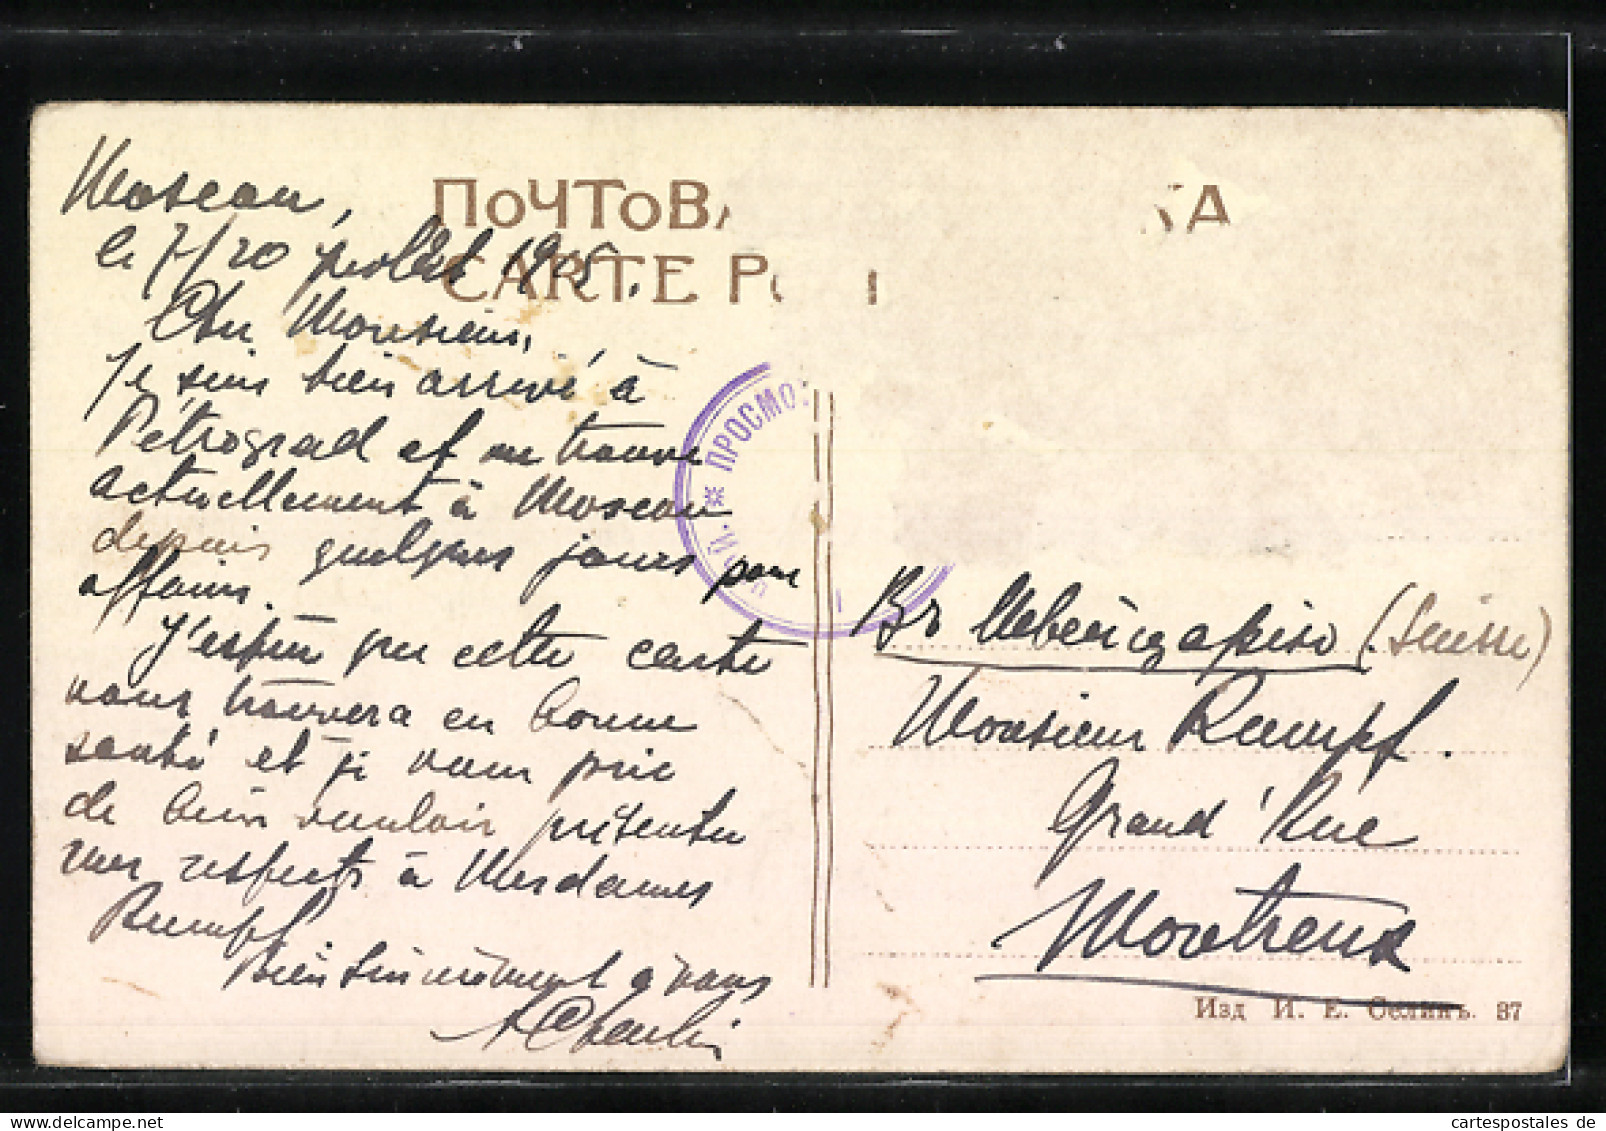 ПОЧТОВА КА
CARTE P
Moscou,
le 7/20 juillet 1915.
Cher Monsieur,
Je suis bien arrivé à
Pétrograd et me trouve
actuellement à Moscou
depuis quelques jours pour
affaires.
J'espère que cette carte
vous trouvera en bonne
santé et je vous prie
de bien vouloir présenter
mes respects à Mesdames
Rumpf.
Bien sincèrement à vous
ПРОСМО
Въ (Suisse)
Monsieur Rumpf.
Grand'Rue
Montreux
Изд И. Е. Селинъ. 37
cartespostales de